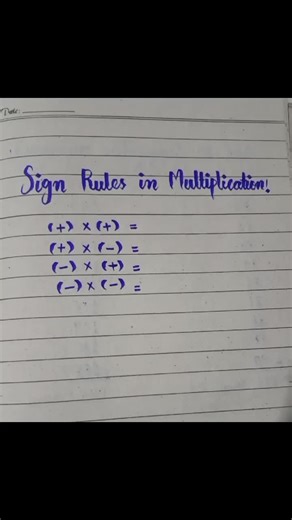 Date:
Sign Rules in Multiplication!
(+) × (+) =
(+) × (-) =
(-) × (+) =
(-) × (-) =